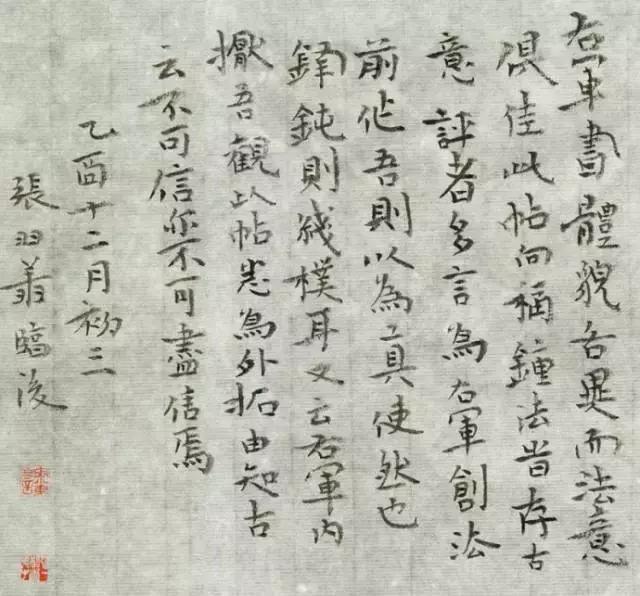 右軍書體貌各異而法意
俱佳此帖向稱鍾法昔存古
意評者多言為右軍創法
前作吾則以為具使然也
鋒鈍則綫樸耳又云右軍內
擫吾觀此帖悉為外拓由知古
云不可信亦不可盡信焉
乙酉十二月初三
張羽翁臨後